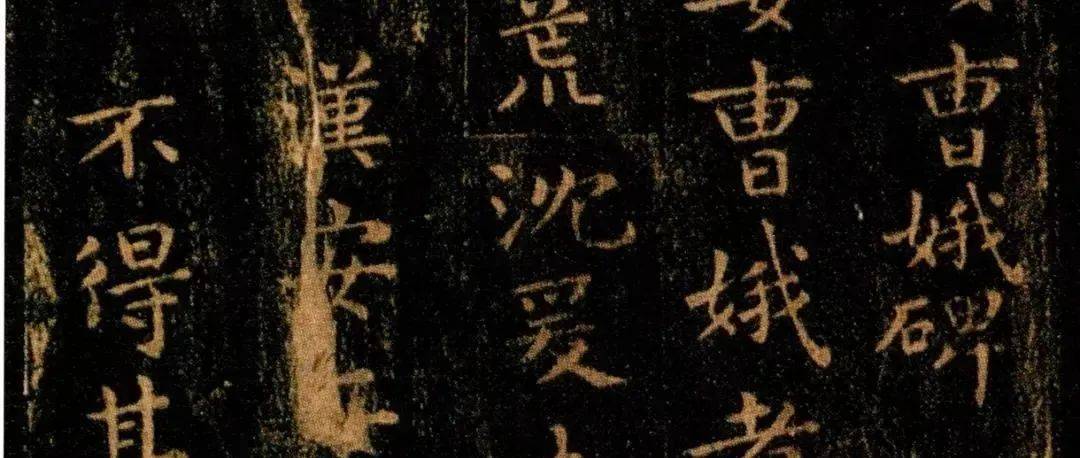 曹娥碑
女曹娥者
荒沈爰
漢安
不得其